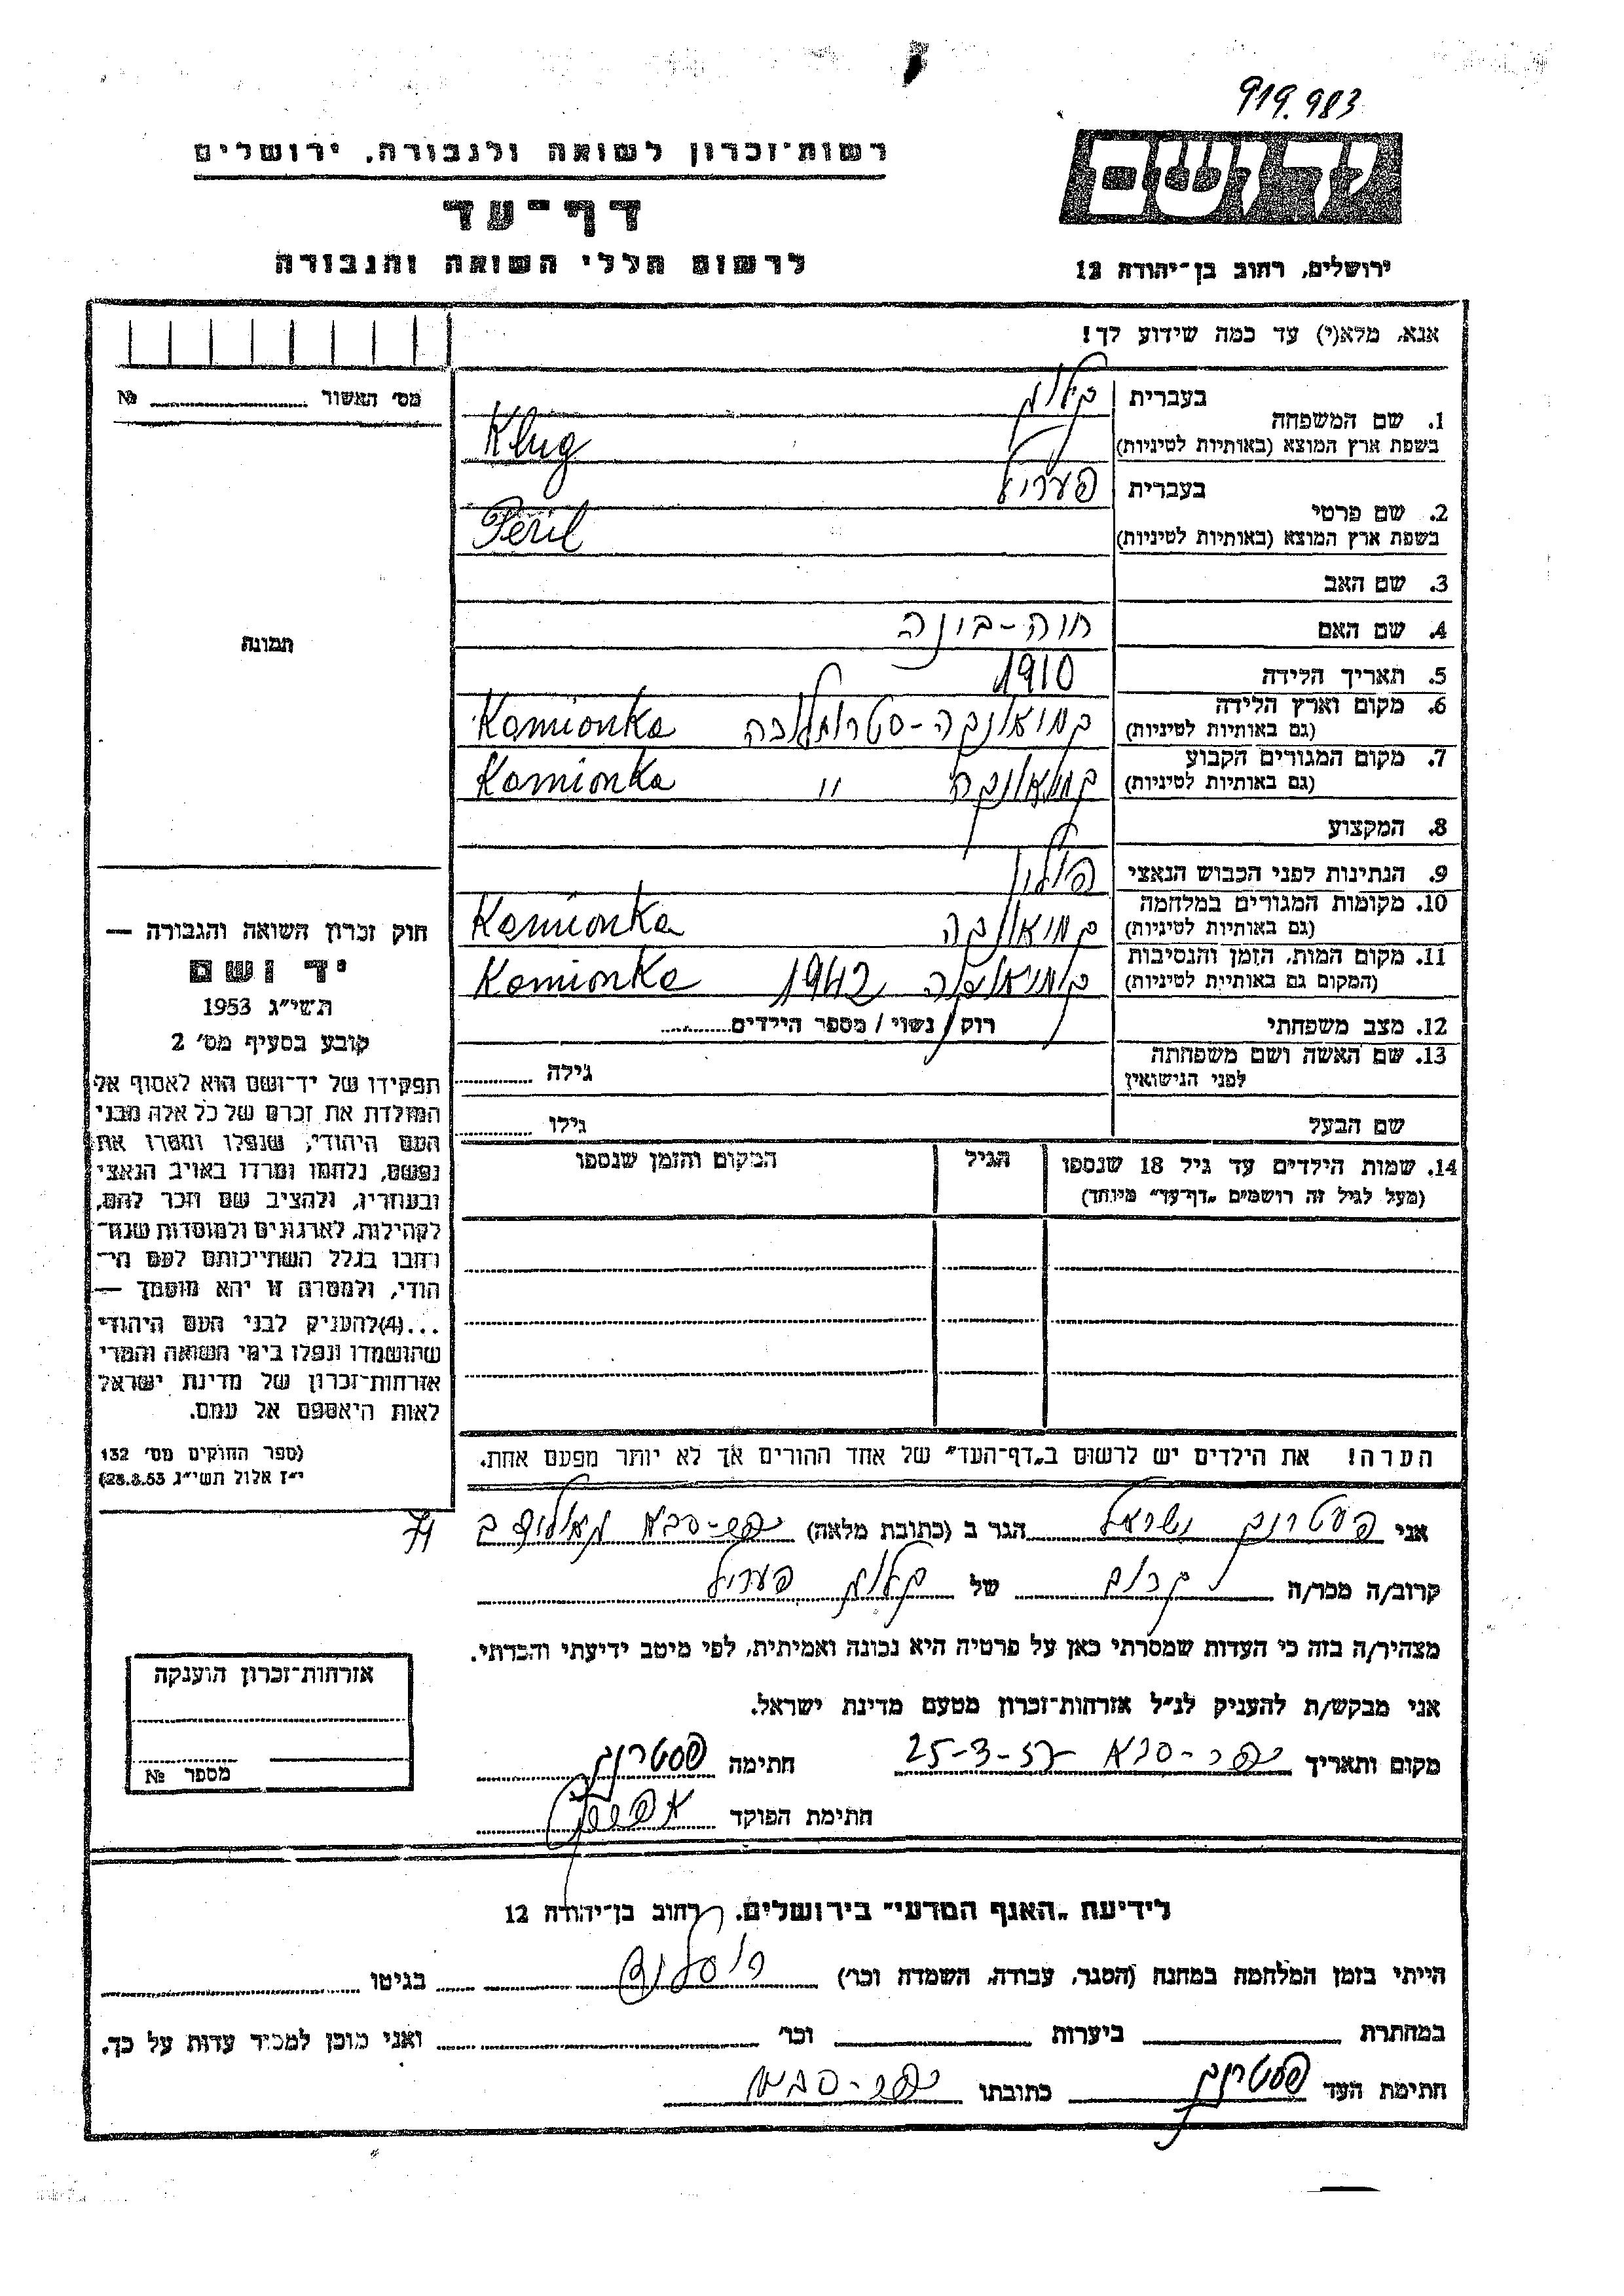 919.983
יד ושם
רשות־זכרון לשואה ולגבורה, ירושלים
דף־עד
לרשום חללי השואה והגבורה
ירושלים, רחוב בן־יהודה 12
אנא, מלא(י) עד כמה שידוע לך!
מס׳ האשור № 
1. שם המשפחה
בעברית קלוג
בשפת ארץ המוצא (באותיות לטיניות) Klug
2. שם פרטי
בעברית פעריל
בשפת ארץ המוצא (באותיות לטיניות) Peril
3. שם האב
4. שם האם חוה-בינה
5. תאריך הלידה 1910
6. מקום וארץ הלידה
(גם באותיות לטיניות) קמיאונקה-סטרומילובה Kamionka
7. מקום המגורים הקבוע
(גם באותיות לטיניות) קמיאונקה " Kamionka
8. המקצוע
9. הנתינות לפני הכבוש הנאצי פולין
10. מקומות המגורים במלחמה
(גם באותיות לטיניות) קמיאונקה Kamionka
11. מקום המות, הזמן והנסיבות
(המקום גם באותיות לטיניות) קמיאונקה 1942 Kamionka
12. מצב משפחתי רוק / נשוי / מספר הילדים..........
13. שם האשה ושם משפחתה
לפני הנישואין גילה ..........
שם הבעל גילו ..........
14. שמות הילדים עד גיל 18 שנספו הגיל המקום והזמן שנספו
(מעל לגיל זה רושמים „דף־עד״ מיוחד)
הערה! את הילדים יש לרשום ב„דף־העד״ של אחד ההורים אך לא יותר מפעם אחת.
תמונה
חוק זכרון השואה והגבורה —
יד ושם
תשי״ג 1953
קובע בסעיף מס׳ 2
תפקידו של יד־ושם הוא לאסוף אל
המולדת את זכרם של כל אלה מבני
העם היהודי, שנפלו ומסרו את
נפשם, נלחמו ומרדו באויב הנאצי
ובעוזריו, ולהציב שם וזכר להם,
לקהילות, לארגונים ולמוסדות שנח־
רבו בגלל השתייכותם לעם הי־
הודי, ולמטרה זו יהא מוסמך —
...(4)להעניק לבני העם היהודי
שהושמדו ונפלו בימי השואה והמרי
אזרחות־זכרון של מדינת ישראל
לאות היאספם אל עמם.
(ספר החוקים מס׳ 132
י״ז אלול תשי״ג 28.8.53)
אני פעטרונק ישראל הגר ב (כתובת מלאה) כפר-סבא 71
קרוב/ה מכר/ה קרוב של קלוג פעריל
מצהיר/ה בזה כי העדות שמסרתי כאן על פרטיה היא נכונה ואמיתית, לפי מיטב ידיעתי והכרתי.
אני מבקש/ת להעניק לנ״ל אזרחות־זכרון מטעם מדינת ישראל.
מקום ותאריך כפר-סבא 25-3-57 חתימה פעטרונק
חתימת הפוקד
אזרחות־זכרון הוענקה
מספר №
לידיעת „האגף המדעי״ בירושלים, רחוב בן־יהודה 12
הייתי בזמן המלחמה במחנה (הסגר, עבודה, השמדה וכו׳) בגיטו
במחתרת ביערות וכו׳ ואני מוכן למכיד עדות על כך.
חתימת העד פעטרונק כתובתו כפר-סבא